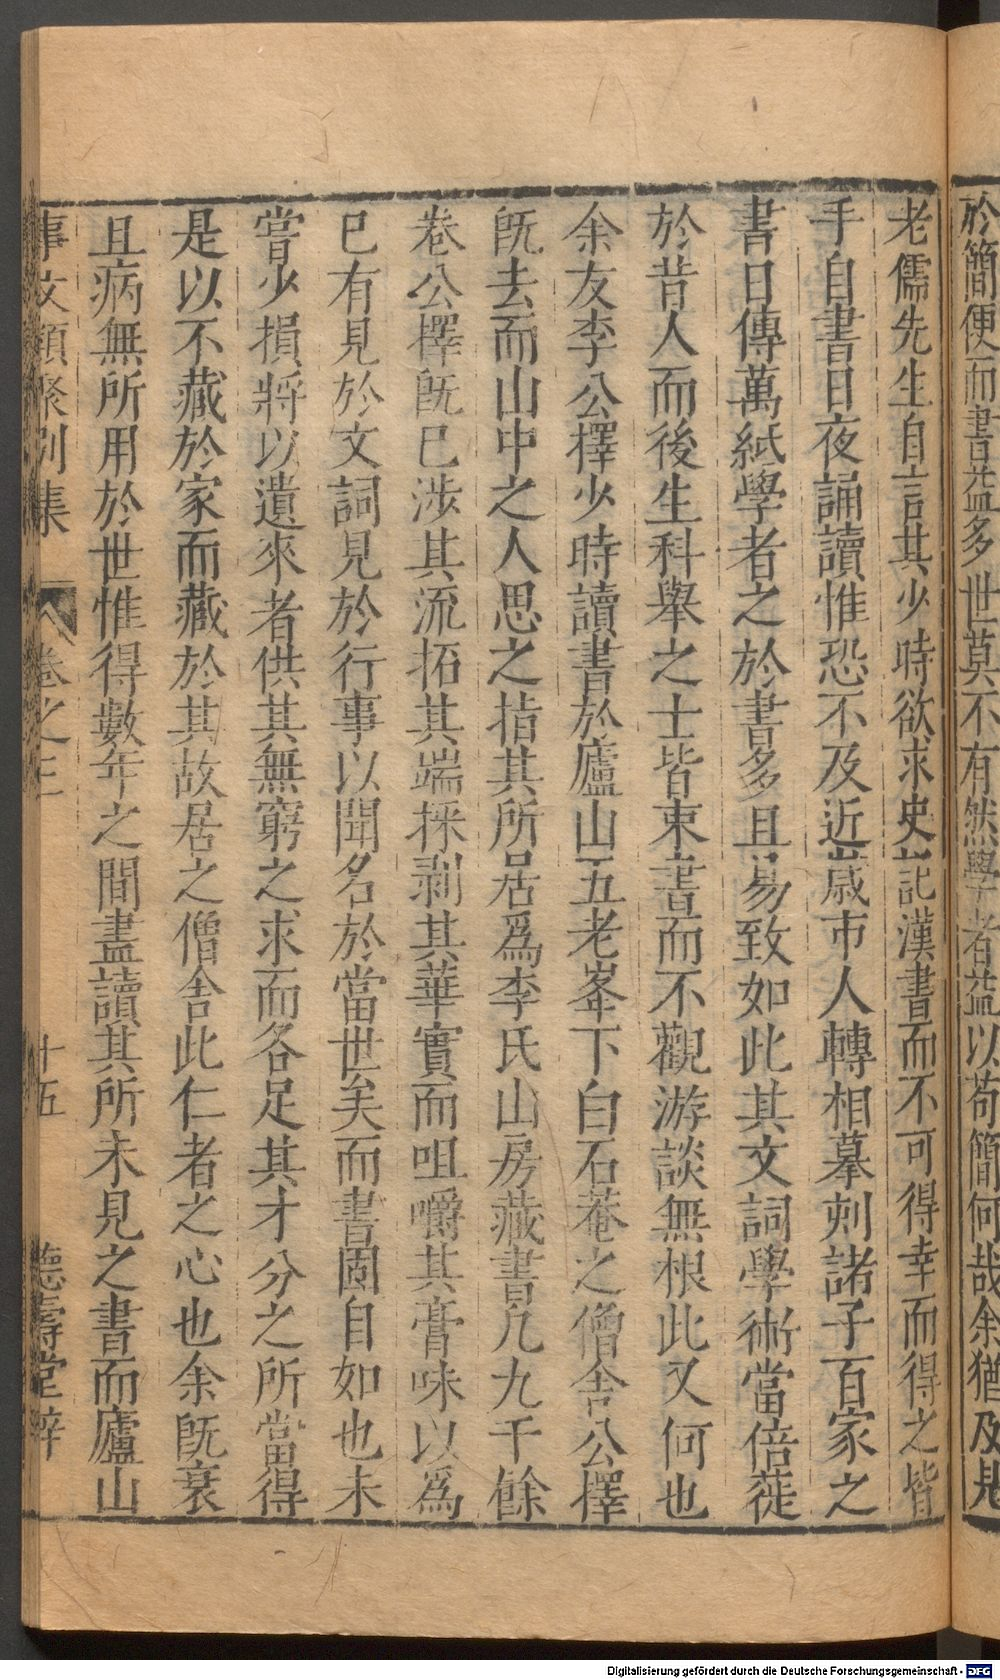 於簡便而書益多世莫不有然學者益以苟簡何哉余猶及見
老儒先生自言其少時欲求史記漢書而不可得幸而得之皆
手自書日夜誦讀惟恐不及近歲市人轉相摹刻諸子百家之
書日傳萬紙學者之於書多且易致如此其文詞學術當倍蓰
於昔人而後生科舉之士皆束書而不觀游談無根此又何也
余友李公擇少時讀書於廬山五老峯下白石菴之僧舍公擇
旣去而山中之人思之指其所居爲李氏山房藏書凡九千餘
卷公擇旣已涉其流拓其端採剥其華實而咀嚼其膏味以爲
已有見於文詞見於行事以聞名於當世矣而書固自如也未
嘗少損將以遺來者供其無窮之求而各足其才分之所當得
是以不藏於家而藏於其故居之僧舍此仁者之心也余旣衰
且病無所用於世惟得數年之間盡讀其所未見之書而廬山
事文類聚別集 卷之三 十五 德壽堂梓
Digitalisierung gefördert durch die Deutsche Forschungsgemeinschaft - DFG